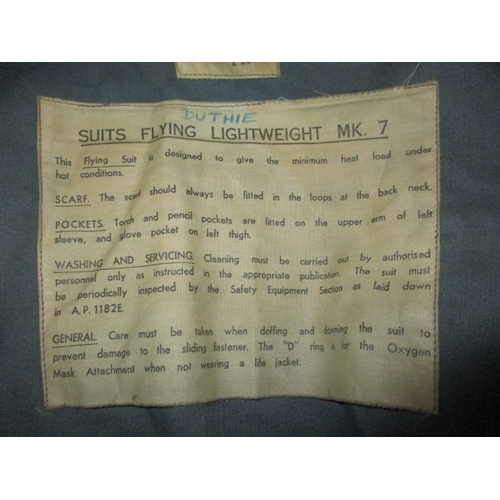 DUTHIE
SUITS FLYING LIGHTWEIGHT MK. 7
This Flying Suit is designed to give the minimum heat load under
hot conditions.
SCARF. The scarf should always be fitted in the loops at the back neck.
POCKETS. Torch and pencil pockets are fitted on the upper arm of left
sleeve, and glove pocket on left thigh.
WASHING AND SERVICING. Cleaning must be carried out by authorised
personnel only as instructed in the appropriate publication. The suit must
be periodically inspected by the Safety Equipment Section as laid down
in A.P. 1182E.
GENERAL. Care must be taken when doffing and donning the suit to
prevent damage to the sliding fastener. The "D" ring is for the Oxygen
Mask Attachment when not wearing a life jacket.